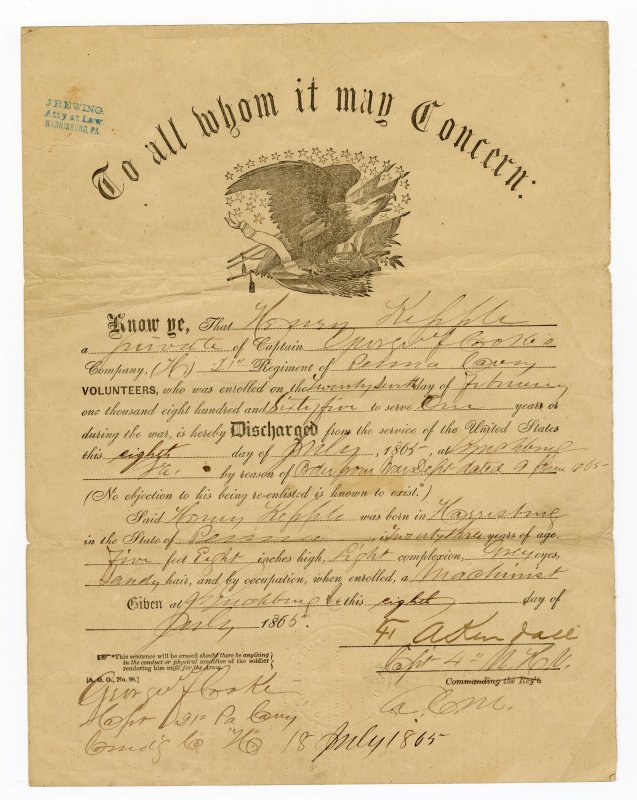 J.B EWING.
Atty at Law
HARRISBURG, PA.
To all whom it may Concern:
Know ye, That Henry Kepple
a private of Captain George F Cooke's
Company, (H) 21st Regiment of Penna Cavy
VOLUNTEERS, who was enrolled on the Twenty day of February
one thousand eight hundred and Sixty five to serve One years or
during the war, is hereby Discharged from the service of the United States
this eighth day of July, 1865, at Lynchburg
Va. by reason of Order from War Dept dated 1865
(No objection to his being re-enlisted is known to exist.*)
Said Henry Kepple was born in Harrisburg
in the State of Penna, is Twenty years of age,
Five feet Eight inches high, Light complexion, Grey eyes,
Sandy hair, and by occupation, when enrolled, a Machinist
Given at Lynchburg Va this eighth day of
July 1865.
F A Kendall
Capt 4"
Commanding the Reg't.
A.C.M.
*This sentence will be erased should there be anything
in the conduct or physical condition of the soldier
rendering him unfit for the Army.
[A. G. O., No. 99.]
George F Cooke
Capt 21st Pa Cavy
Comd'g Co "H" 18 July 1865